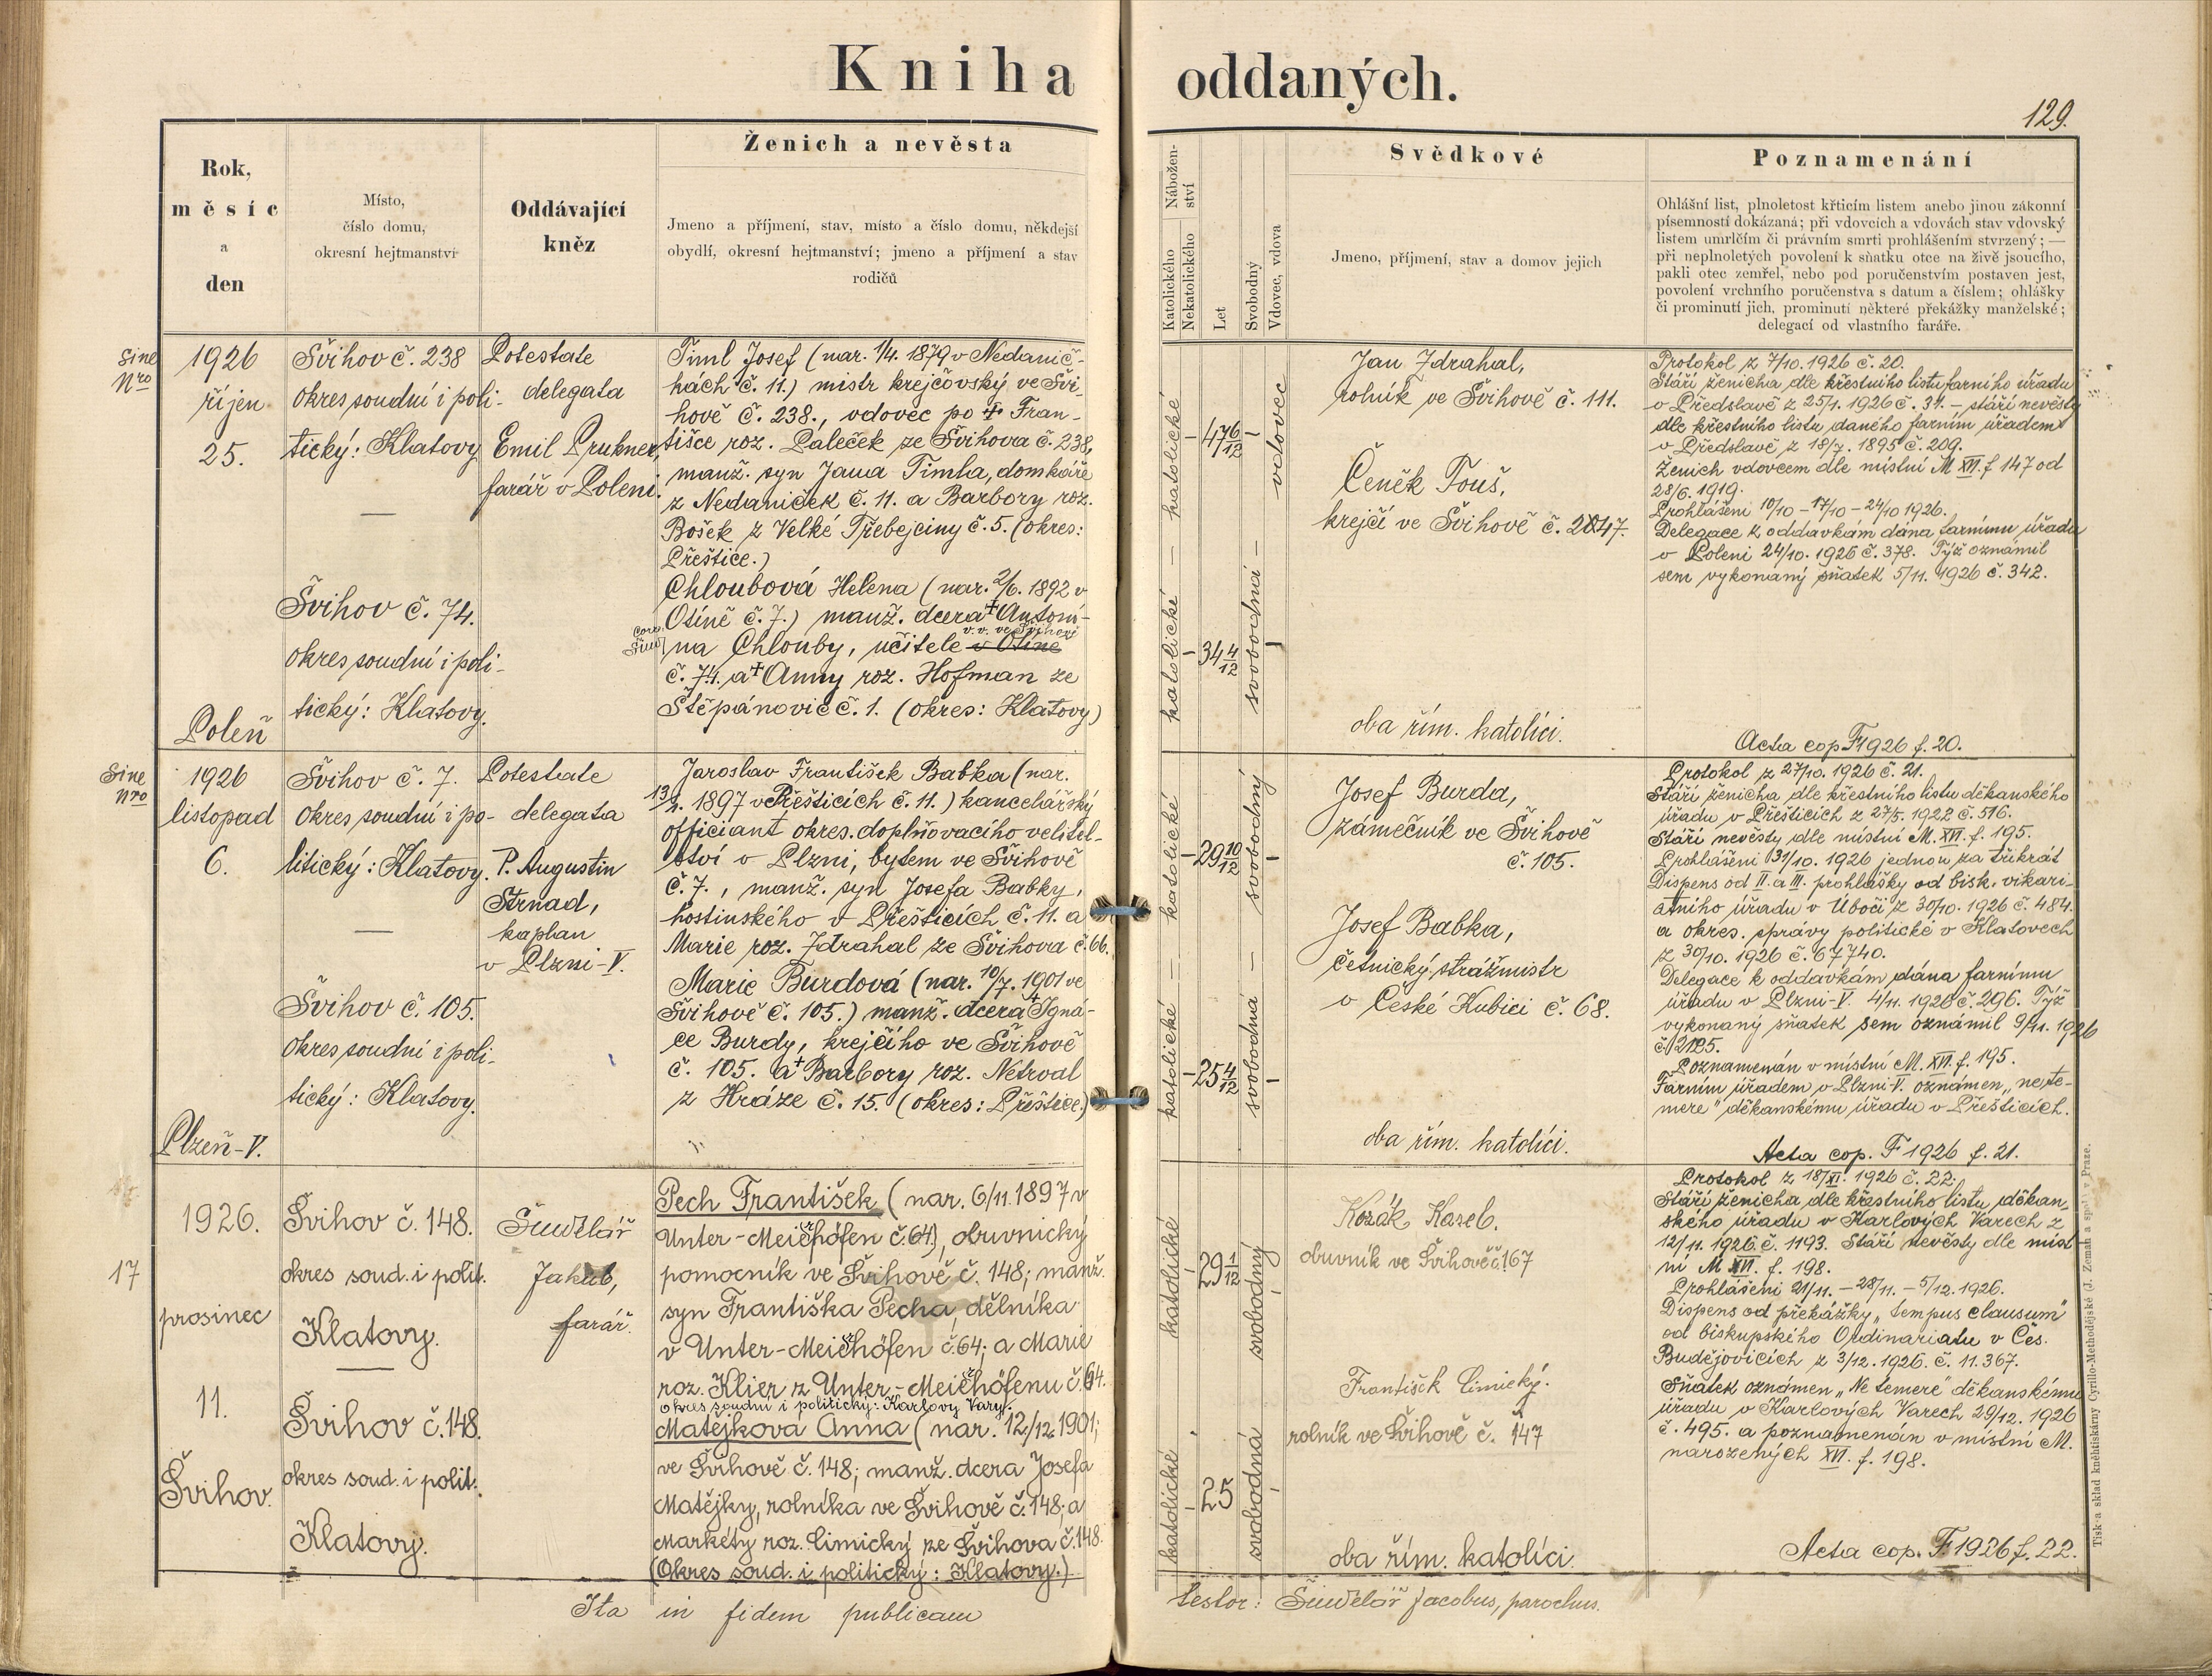 Kniha oddaných.
129.
Rok,
měsíc
a
den
Místo,
číslo domu,
okresní hejtmanství
Oddávající
kněz
Ženich a nevěsta
Jmeno a příjmení, stav, místo a číslo domu, někdejší
obydlí, okresní hejtmanství; jmeno a příjmení a stav
rodičů
Nábožen-
ství
Katolického
Nekatolického
Let
Svobodný
Vdovec, vdova
Svědkové
Jmeno, příjmení, stav a domov jejich
Poznamenání
Ohlášní list, plnoletost křticím listem anebo jinou zákonní
písemností dokázaná; při vdovcích a vdovách stav vdovský
listem umrlčím či právním smrti prohlášením stvrzený; —
při neplnoletých povolení k sňatku otce na živě jsoucího,
pakli otec zemřel, nebo pod poručenstvím postaven jest,
povolení vrchního poručenstva s datum a číslem; ohlášky
či prominutí jich, prominutí některé překážky manželské;
delegací od vlastního faráře.
Sine
Nro
1926
říjen
25.
Poleň
Švihov č. 238
okres soudní i poli-
tický: Klatovy
—
Švihov č. 74.
okres soudní i poli-
tický: Klatovy.
Potestate
delegata
Emil Prukner,
farář v Poleni.
Timl Josef (nar. 1/4. 1879 v Nedanič-
kách č. 11.) mistr krejčovský ve Švi-
hově č. 238., vdovec po + Fran-
tišce roz. Paleček ze Švihova č. 238,
manž. syn Jana Timla, domkáře
z Nedaniček č. 11. a Barbory roz.
Bošek z Velké Třebejciny č. 5. (okres:
Přeštice.)
Chloubová Helena (nar. 2/6. 1892 v
Otíně č. 7.) manž. dcera + Antoní-
v. v. ve Švihově
na Chlouby, učitele v Otíně
č. 74. a + Anny roz. Hofman ze
Štěpánovic č. 1. (okres: Klatovy)
katolické — katolické
47 6/12
34 4/12
vdovec
svobodná —
Jan Zdrahal,
rolník ve Švihově č. 111.
Čeněk Touš,
krejčí ve Švihově č. 247.
oba řím. katolíci.
Protokol z 7/10. 1926 č. 20.
Stáří ženicha dle křestního listu farního úřadu
v Předslavě z 25/1. 1926 č. 31. – stáří nevěsty
dle křestního listu daného farním úřadem
v Předslavě z 18/7. 1895 č. 209.
Ženich vdovcem dle místní M XII. f 147 od
28/6. 1919.
Prohlášeni 10/10 – 17/10 – 24/10 1926.
Delegace k oddavkám dána farnímu úřadu
v Poleni 24/10. 1926 č. 378. Týž oznámil
sem vykonaný sňatek 5/11. 1926 č. 342.
Acta cop F 1926 f. 20.
Sine
Nro
1926
listopad
6.
Plzeň-V.
Švihov č. 7.
okres soudní i po-
litický: Klatovy.
—
Švihov č. 105.
okres soudní i poli-
tický: Klatovy.
Potestate
delegata
P. Augustin
Strnad,
kaplan
v Plzni-V.
Jaroslav František Babka (nar.
13/2. 1897 v Přešticích č. 11.) kancelářský
officiant okres. doplňovacího velitel-
ství v Plzni, bytem ve Švihově
č. 7., manž. syn Josefa Babky,
hostinského v Přešticích č. 11. a
Marie roz. Zdrahal ze Švihova č. 66.
Marie Burdová (nar. 10/7. 1901 ve
Švihově č. 105.) manž. dcera + Igná-
ce Burdy, krejčího ve Švihově
č. 105. a + Barbory roz. Netrval
z Hráze č. 15. (okres: Přeštice.)
katolické — katolické
29 10/12
25 4/12
svobodná — svobodný
Josef Burda,
zámečník ve Švihově
č. 105.
Josef Babka,
četnický strážmistr
v České Kubici č. 68.
oba řím. katolíci.
Protokol z 27/10. 1926 č. 21.
Stáří ženicha dle křestního listu děkanského
úřadu v Přešticích z 27/5. 1922 č. 516.
Stáří nevěsty dle místní M. XVI. f. 195.
Prohlášeni 31/10. 1926 jednou za třikrát
Dispens od II. a III. prohlášky od bisk. vikari-
átního úřadu v Úbočí z 30/10. 1926 č. 484.
a okres. správy politické v Klatovech
z 30/10. 1926 č. 67740.
Delegace k oddavkám dána farnímu
úřadu v Plzni-V. 4/11. 1926 č. 296. Týž
vykonaný sňatek sem oznámil 9/11. 1926
Poznamenán v místní M. XVI. f. 195.
Farním úřadem v Plzni V. oznámen „ne te-
mere“ děkanskému úřadu v Přešticích.
Acta cop. F 1926 f. 21.
17
1926.
prosinec
11.
Švihov.
Švihov č. 148.
okres soud. i polit.
Klatovy.
—
Švihov č. 148.
okres soud. i polit.
Klatovy.
Šindelář
Jakub,
farář.
Pech František (nar. 6/11. 1897 v
Unter-Meierhöfen č. 64), obuvnický
pomocník ve Švihově č. 148; manž.
syn Františka Pecha, dělníka
v Unter-Meierhöfen č. 64; a Marie
roz. Klier z Unter-Meierhöfenu č. 64.
okres soudní i politický: Karlovy Vary.
Matějková Anna (nar. 12/12. 1901;
ve Švihově č. 148; manž. dcera Josefa
Matějky, rolníka ve Švihově č. 148; a
Markéty roz. Cimický ze Švihova č. 148
(Okres soud. i politický: Klatovy.)
katolické katolické
29 1/12
25
svobodná svobodný
Kozák Karel.
obuvník ve Švihově č. 167
František Cimický.
rolník ve Švihově č. 147
oba řím. katolíci.
Protokol z 18/XI. 1926 č. 22.
Stáří ženicha dle křestního listu děkan-
ského úřadu v Karlových Varech z
12/11. 1926. č. 1193. Stáří nevěsty dle míst
ní M XVI. f. 198.
Prohlášeni 21/11. – 28/11. – 5/12. 1926.
Dispens od překážky „tempus clausum“
od biskupského Ordinariatu v Čes.
Budějovicích z 3/12. 1926. č. 11.367.
Sňatek oznámen „Ne temere“ děkanskému
úřadu v Karlových Varech 29/12. 1926
č. 495. a poznamenán v místní M.
narozených XVI. f. 198.
Acta cop. F. 1926 f. 22.
Ita in fidem publicam
testor: Šindelář Jacobus, parochus.
Tisk a sklad knihtiskárny Cyrillo-Methodějské (J. Zeman a spol.) v Praze.